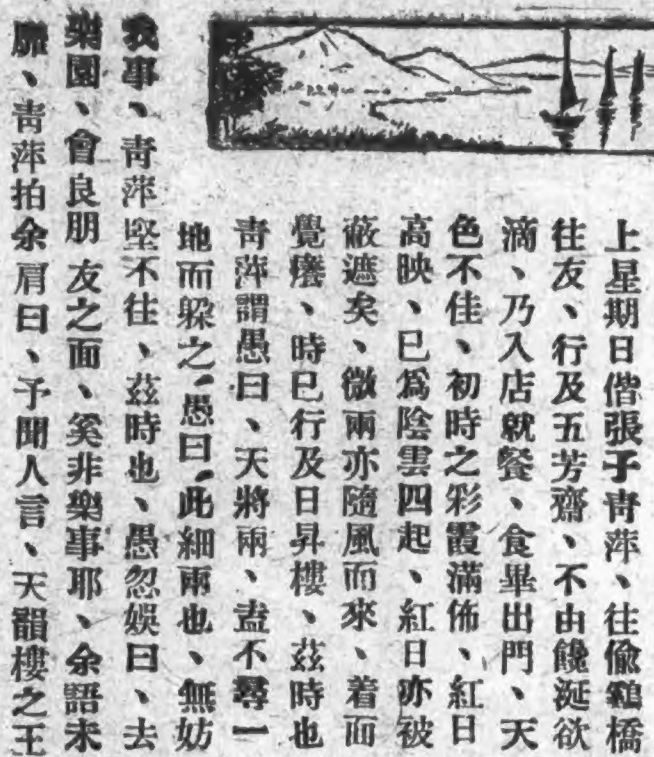 上星期日偕張子青萍、往偷雞橋
往友、行及五芳齋、不由饞涎欲
滴、乃入店就餐、食畢出門、天
色不佳、初時之彩霞滿佈、紅日
高映、已爲陰雲四起、紅日亦被
蔽遮矣、微雨亦隨風而來、着面
覺癢、時已行及日昇樓、茲時也
青萍謂愚曰、天將雨、盍不尋一
地而躲之、愚曰、此細雨也、無妨
我事、青萍堅不往、茲時也、愚忽娛曰、去
樂園、會良朋友之面、奚非樂事耶、余語未
靡、青萍拍余肩曰、予聞人言、天韻樓之王